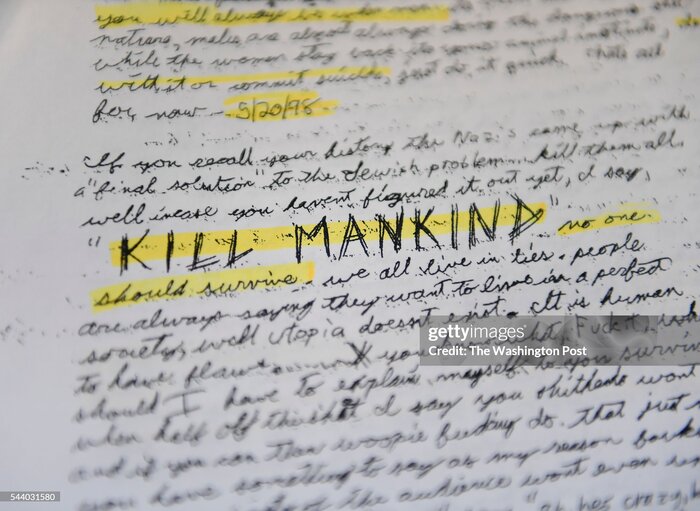 you will always be under man
nations, males are almost always doing the dangerous
while the women stay back its your animal instincts,
with it or commit suicide, just do it quick. thats all
for now - 5/20/98
If you recall your history the Nazis came up with
a "final solution" to the Jewish problem. kill them all.
well incase you havent figured it out yet, I say,
"KILL MANKIND" no one
should survive. we all live in lies. people
are always saying they want to live in a perfect
society, well utopia doesnt exist. It is human
to have flaws you know what, Fuck it, why
should I have to explain myself to you
when half of this shit I say you shitheads wont
and if you can then woopie fucking do. that just
you have something to say as my reason
the audience wont even
gettyimages®
Credit: The Washington Post
544031580